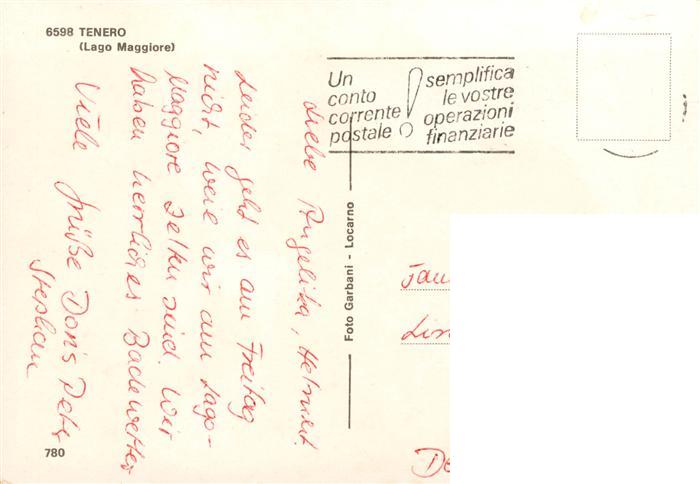 6598 TENERO
(Lago Maggiore)
Un
conto
corrente
postale
!
semplifica
le vostre
operazioni
finanziarie
Liebe Angelika, Helmut.
Leider geht es am Freitag
nicht, weil wir am Lago-
Maggiore Zelten sind. Wir
haben herrliches Badewetter
Viele Grüße Doris Peter
Stephan
Foto Garbani - Locarno
780